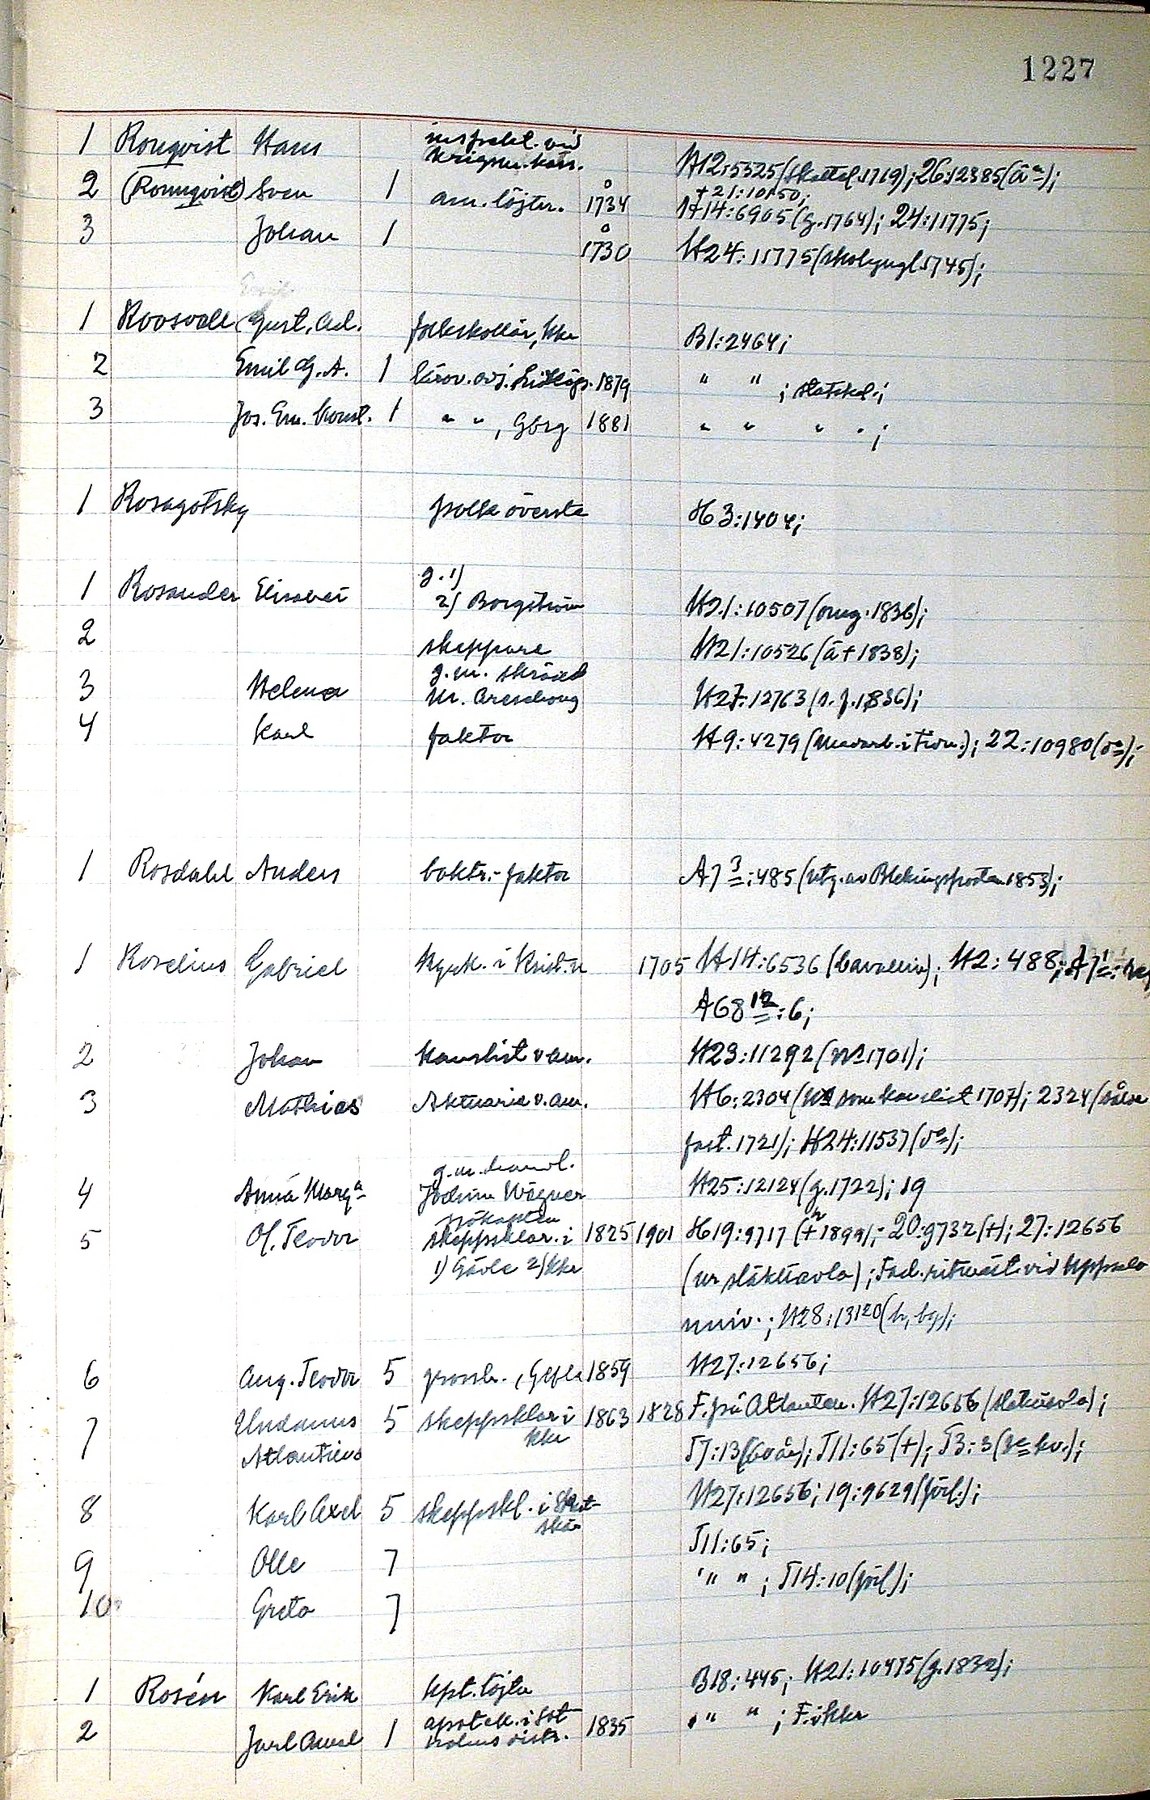 1227
1 Ronqvist Hans inspekt. vid
2 (Rönnqvist) Sven 1 am. löjtn. 1734 H12:5325 (skattel. 1719); 26:12385 (äe);
+21:10150;
H14:6905 (g. 1764); 24:11775;
3 Johan 1 1730 H24:11775 (skolyngl. 1745);
1 Roosvall Gust. Ad. folkskollär, Kkr B1:2464;
2 Emil G. A. 1 lärov. adj. Lidköp. 1879 " " ;
3 Jos. Em. Konst. 1 " " , Gbrg 1881 " " " " ;
1 Rosagotsky polsk överste H3:1404;
1 Rosander Elisabet g. 1)
2) Borgström H21:10507 (omg. 1836);
2 skeppare H21:10526 (ä+1838);
3 Helena g.m. skräd
m. Areschoug H27:12763 (s. f. 1836);
4 Karl faktor H9:4279 (Medarb. i); 22:10980 (de);
1 Rosdahl Anders boktr.-faktor A7 3:485 (utg. av Blekingsposten 1853);
1 Roselius Gabriel kyrk. i Krist:a 1705 H14:6536 (Cavallin); H2:488; A7 1:
A68 12:6;
2 Johan Kanslist v. am. H23:11292 (1701);
3 Mathias Aktuarie v. am. H6:2304 (som kanslist 1707); 2324 (såld
fast. 1721); H24:11537 (de);
4 Anna Marga g.m. handl.
Jochim Wägner H25:12124 (g. 1722); 19
5 Ol. Teodor sjökapten
skeppsklar. i 1825 1901 H19:9717 (+ 1899); 20:9732 (+); 27:12656
1) Gävle 2) Kkr (ur släkttavla); Fäd. ritmäst. vid Uppsala
univ.; H28:13120 (h, bg);
6 Aug. Teodor 5 grossh., Gefle 1859 H27:12656;
7 Undanus 5 skeppsklar i 1863 1828 F. på Atlanten. H27:12656 (släkttavla);
Atlanticus Kkr T7:13 (60 år); T11:65 (+); T3:3 (kv.);
8 Karl Axel 5 skeppskl. i
skär H27:12656; 19:9629 (förl.);
9 Olle 7 T11:65;
10 Greta 7 " " ; T14:10 (förl);
1 Rosén Karl Erik kpt. löjtn B18:445; H21:10475 (g. 1832);
2 Jarl Axel 1 apotek. i Sot
holms distr. 1835 " " ; F. i Kkr